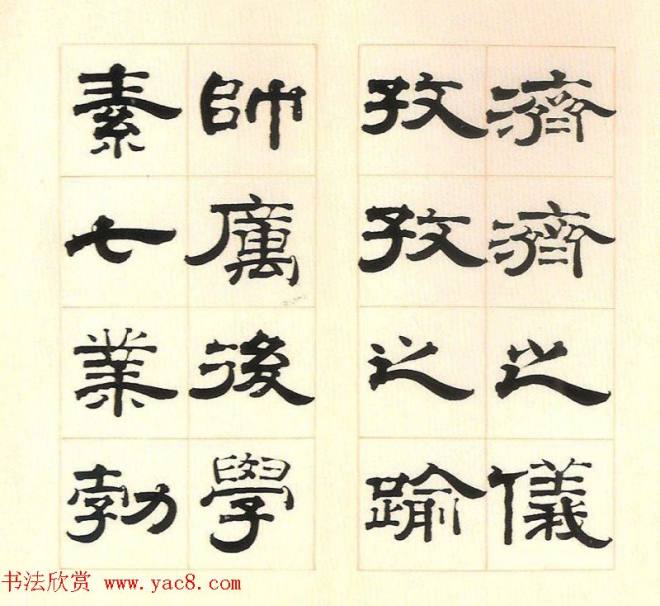 濟濟之儀
孜孜之踰
帥厲後學
素七業勃
书法欣赏 www.yac8.com